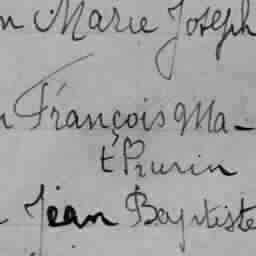 n Marie Joseph
n François Ma-
thurin
Jean Baptiste